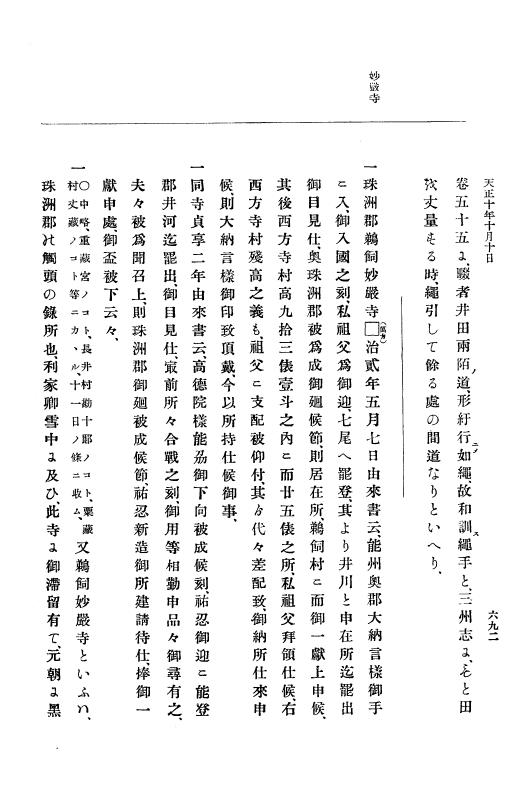 天正十年十月十日
六九二
妙嚴寺
卷五十五ゟ、畷者井田兩陌ノ道、形紆行如繩、故和訓繩手と、三州志ゟ、もと田
を丈量する時、繩引して餘る處の間道なりといへり、
一珠洲郡鵜飼妙嚴寺□治貳年五月七日由來書云、能州奧郡大納言樣御手
ニ入、御入國之刻、私祖父爲御迎、七尾へ罷登、其より井川と申在所迄罷出
御目見仕、奧珠洲郡被爲成御廻候節、則居在所、鵜飼村ニ而御一獻上申候、
其後西方寺村高九拾三俵壹斗之內ニ而廿五俵之所、私祖父拜領仕候、右
西方寺村殘高之義も、祖父ニ支配被仰付、其ゟ代々差配致、御納所仕來申
候、則大納言樣御印致頂戴、今以所持仕候御事、
一同寺貞享二年由來書云、高德院樣能劦御下向被成候刻、祐忍御迎ニ能登
郡井河迄罷出、御目見仕、最前所々合戰之刻、御用等相勤申品々御尋有之、
夫々被爲聞召上、則珠洲郡御廻被成候節、祐忍新造御所建請待仕、捧御一
獻申處、御盃被下云々、
一〇中略、重藏宮ノコト、長井村勘十郎ノコト、粟藏
村丈藏ノコト等ニカヽル、十一日ノ條ニ收ム、又鵜飼妙嚴寺といふハ、
珠洲郡の觸頭の錄所也、利家卿雪中に及ひ、此寺に御滯留有て、元朝に黑